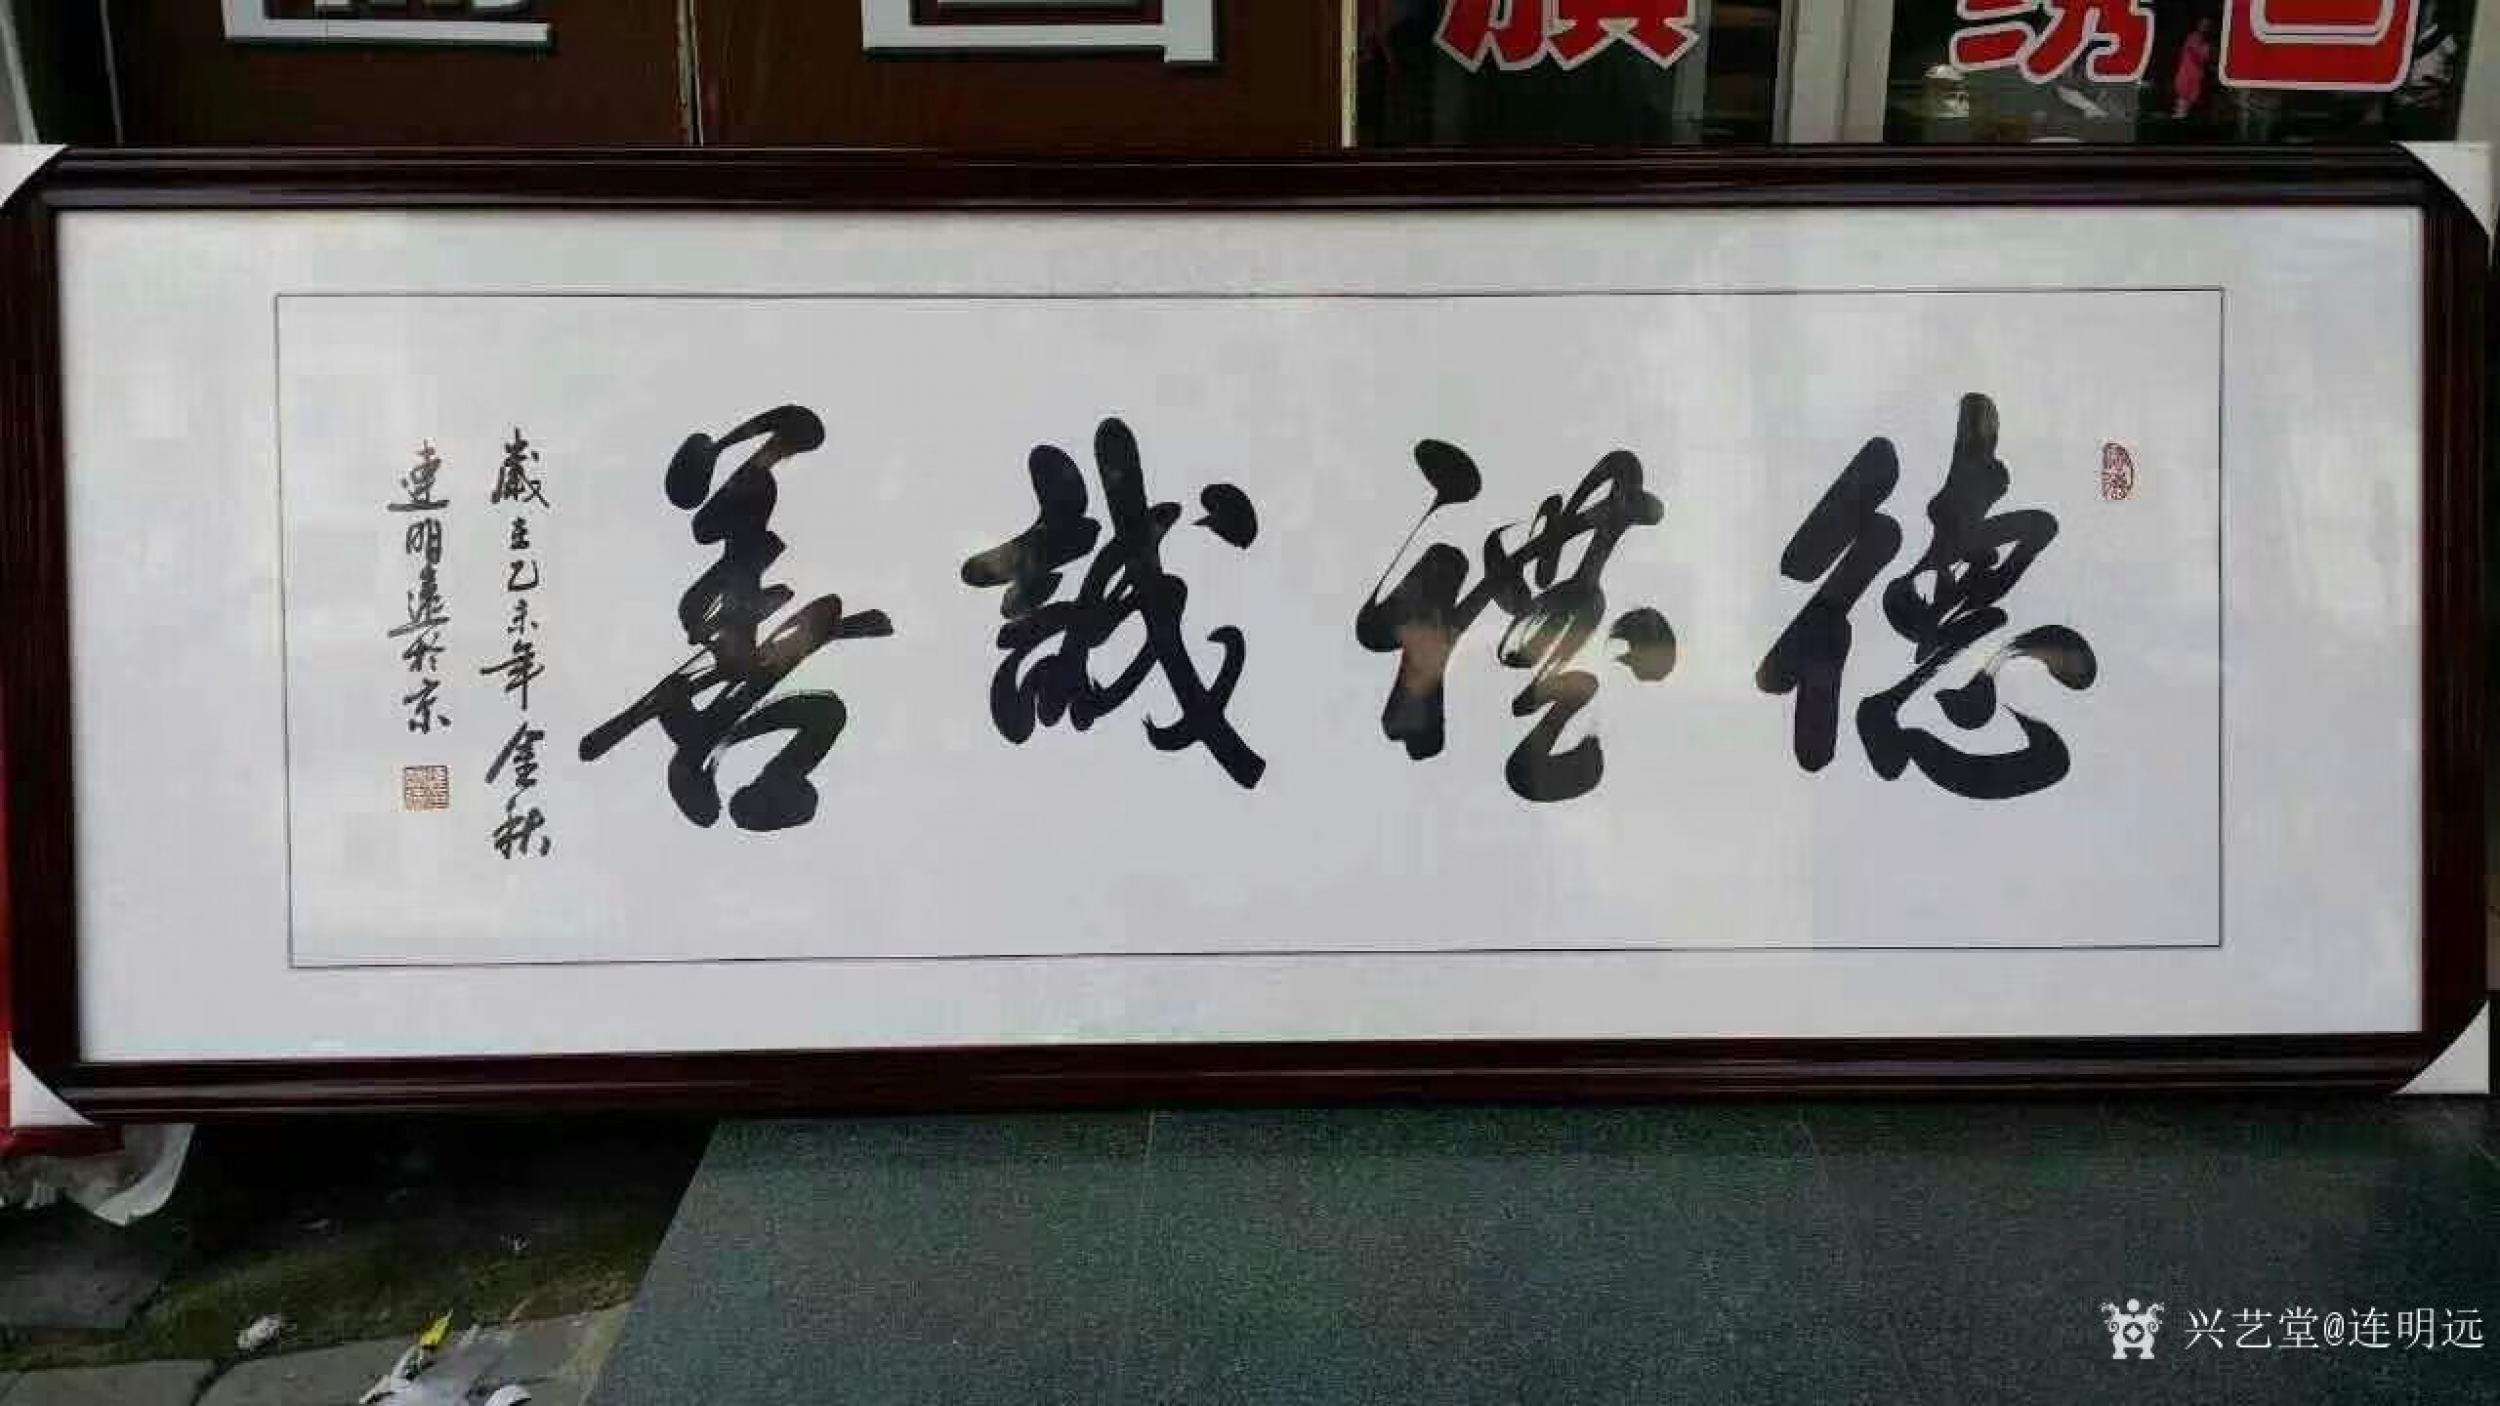 德禮誠善
歲在乙未年金秋
連明遠於京
旗
绣
兴艺堂@连明远